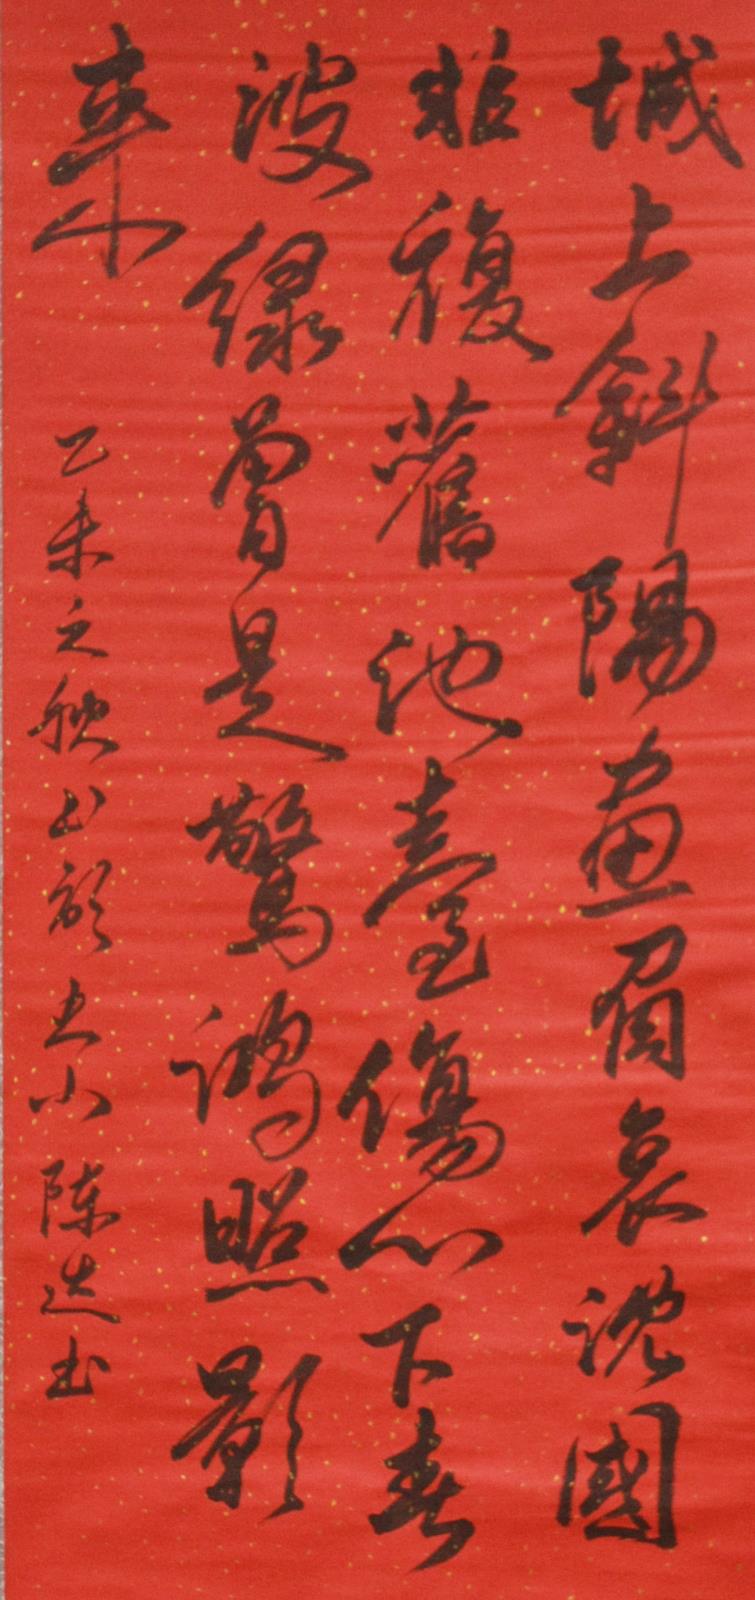 城上斜陽畫角哀沈園
非復舊池臺傷心下春
波綠曾是驚鴻照影
來
乙未之秋 小陳 書